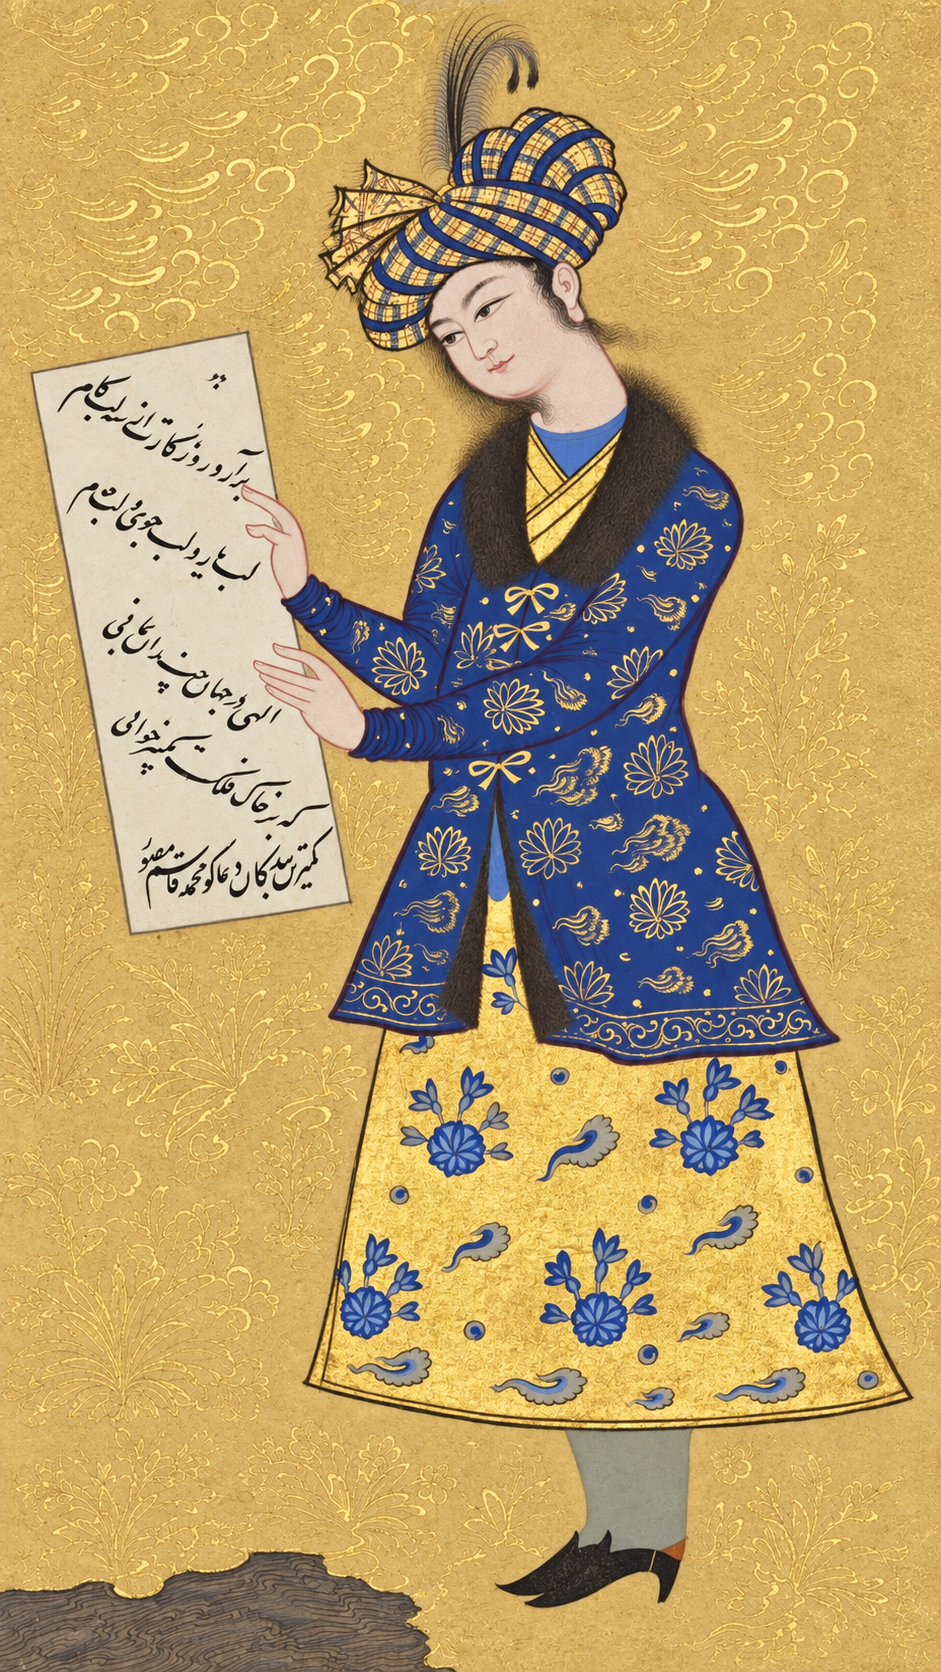 برآرد روزگارت از سه لب کام
لب یار و لب جوی و لب جام
الهی در جهان چندان بمانی
که بر خاک فلک خوانی
کمترین بندگان دعاگو محمد قاسم مصور